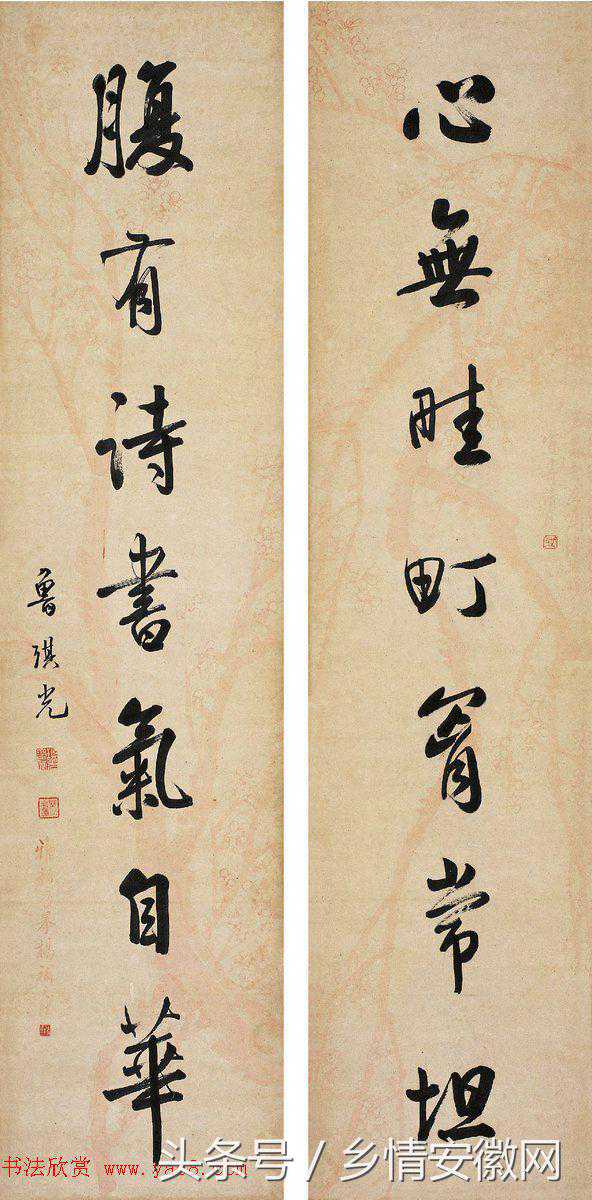 心無畦町胷常坦
腹有詩書氣自華
魯琪光
书法欣赏
头条号 / 乡情安徽网